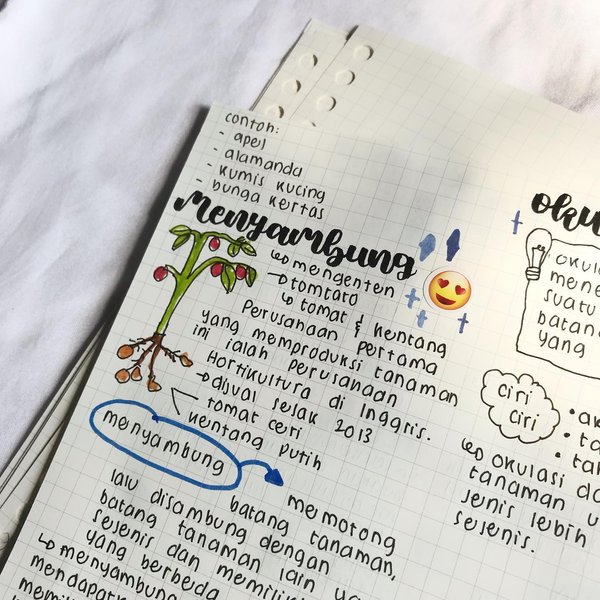 contoh:
- apel
- alamanda
- kumis kucing
- bunga kertas
Menyambung
↳ mengenten
→ tomtato
↳ tomat & kentang
Perusahaan pertama
yang memproduksi tanaman
ini ialah perusahaan
Hortikultura di Inggris.
→ dijual sejak 2013
tomat ceri
kentang putih
menyambung
memotong
batang tanaman,
lalu disambung dengan
batang tanaman lain ya
sejenis dan memiliki
yang berbeda
↳ menyambung
mendapat
oku
okula
mene
suatu
batang
yang
ciri
ciri
• ak
• ta
• tak
↳ okulasi da
tanaman u
jenis lebih
sejenis.